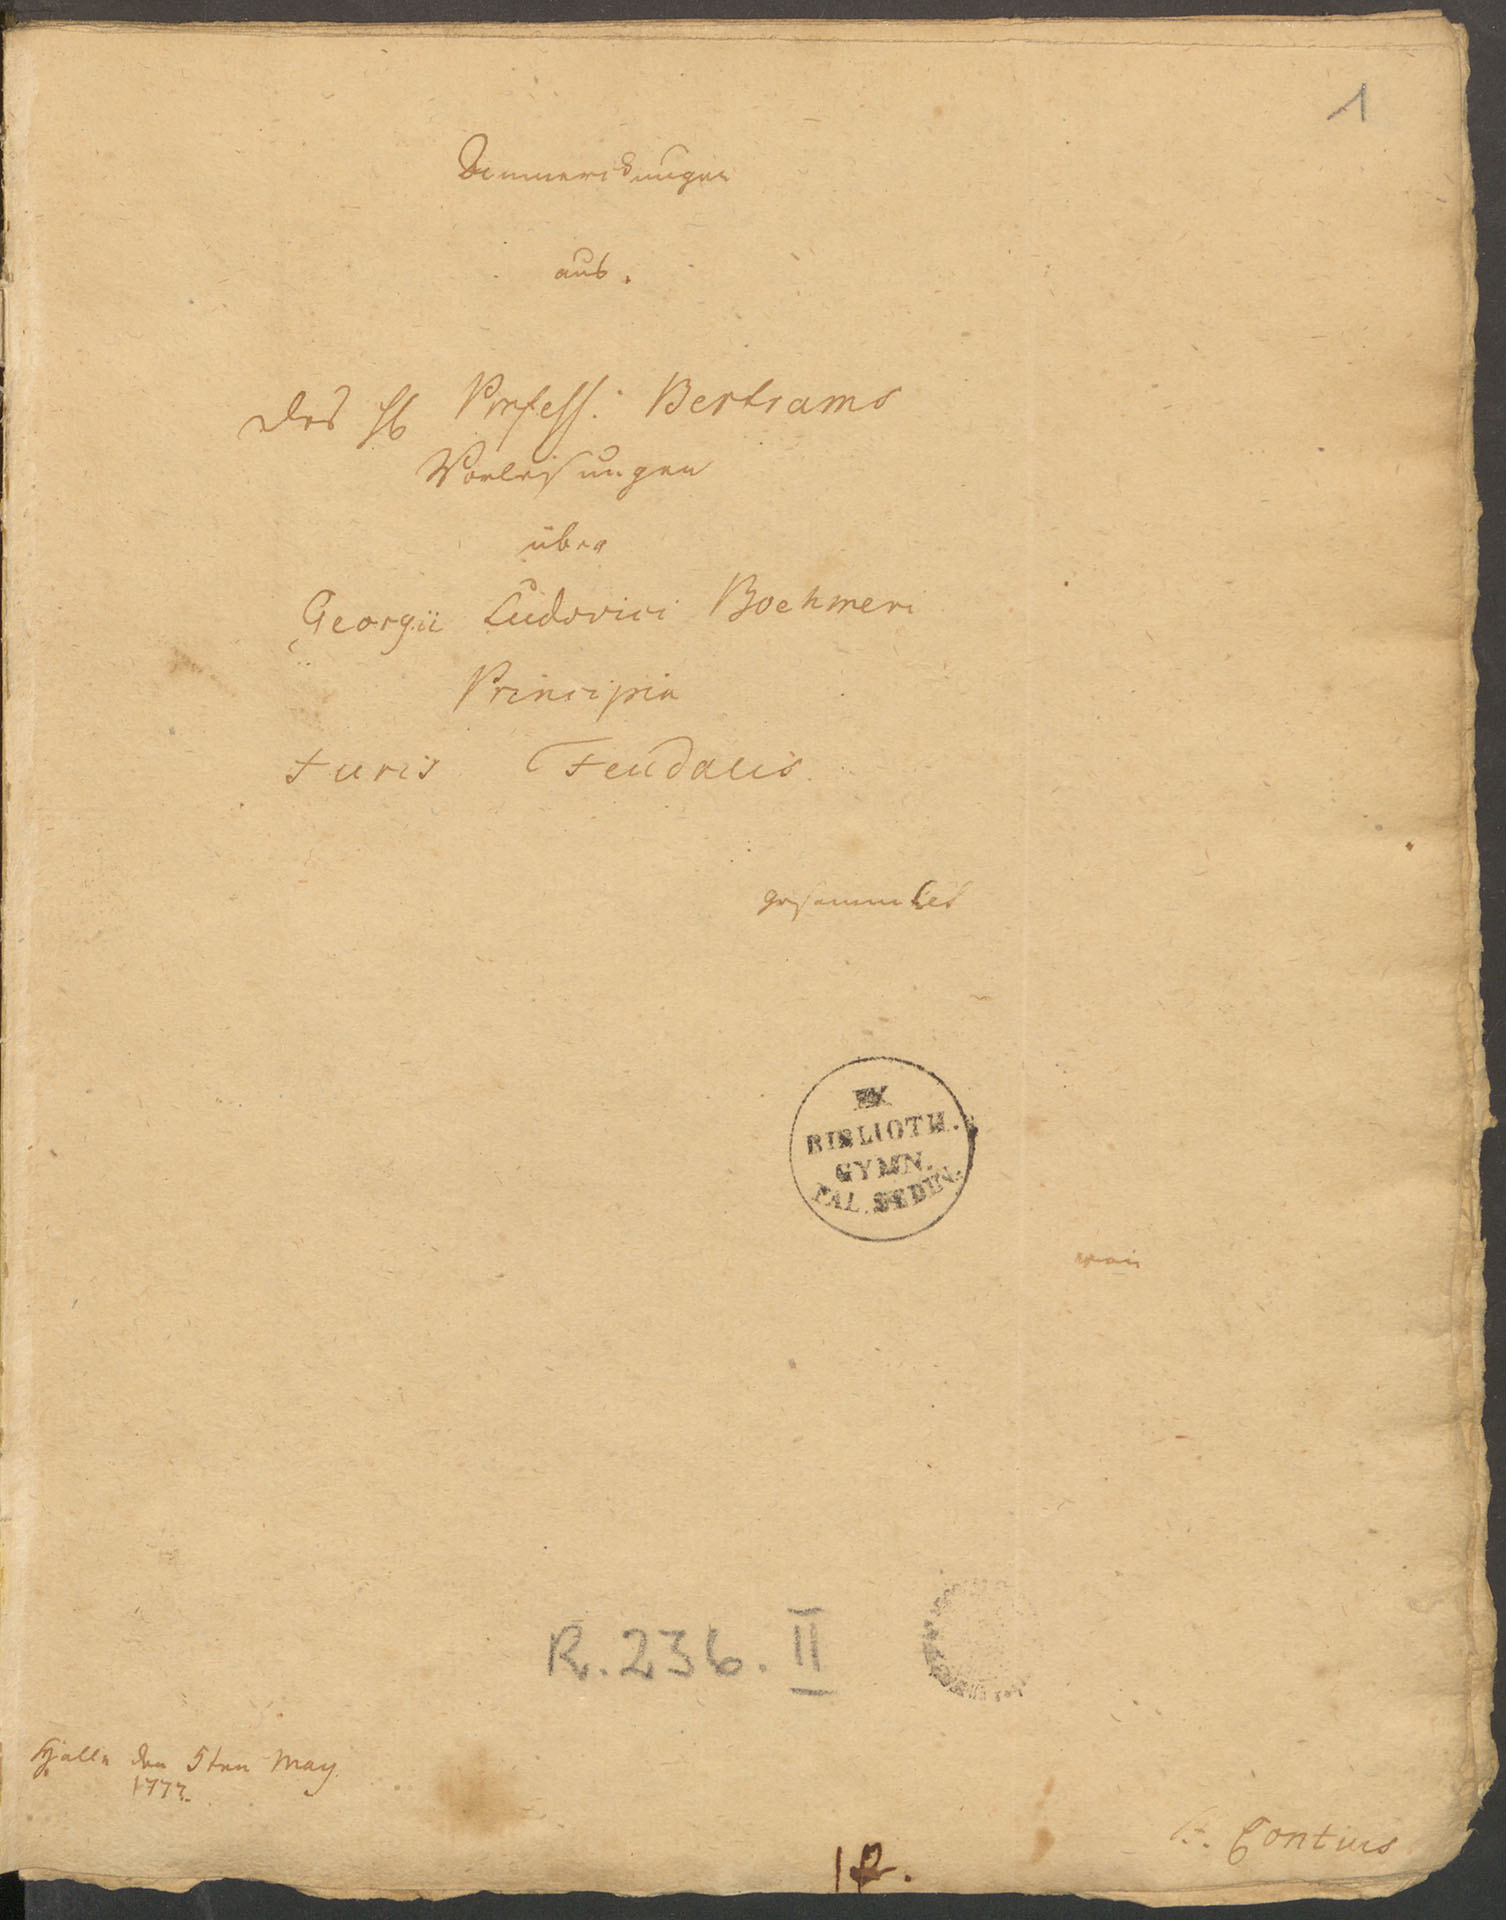 1
Anmerckungen
aus.
des H Profess: Bertrams
Vorlesungen
über
Georgii Ludovici Boehmeri
Principia
Iuris Feudalis.
gesammlet
EX
BIBLIOTH.
GYMN.
TAL. STDEN.
von
R. 236. II
Halle den 5ten May.
1773.
Contius